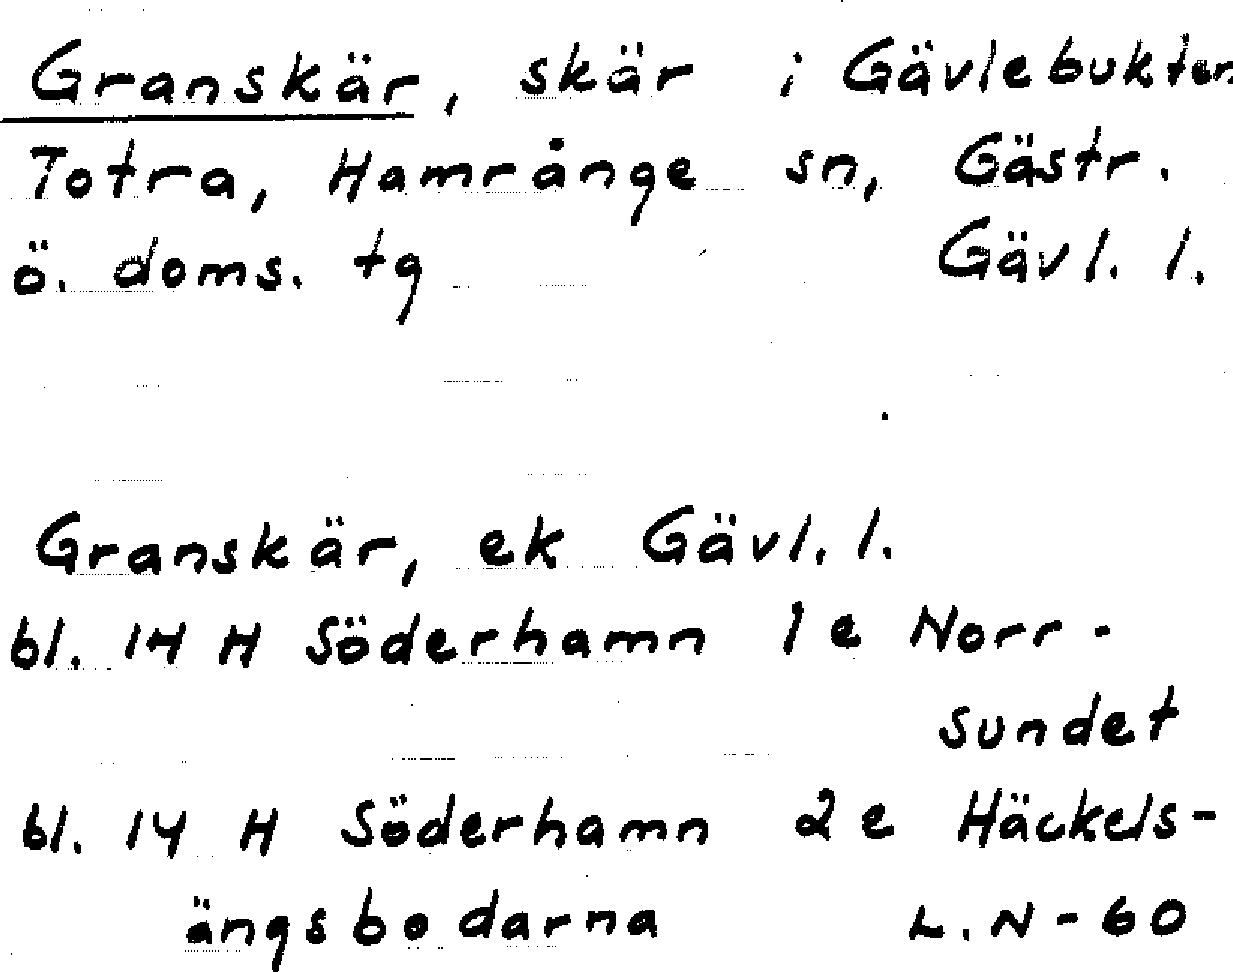 Granskär, skär i Gävlebukten
Totra, Hamrånge sn, Gästr.
ö. doms. tg Gävl. l.
Granskär, ek Gävl. l.
bl. 14 H Söderhamn 1 e Norr-
sundet
bl. 14 H Söderhamn 2 e Häckels-
ängsbodarna L. N-60